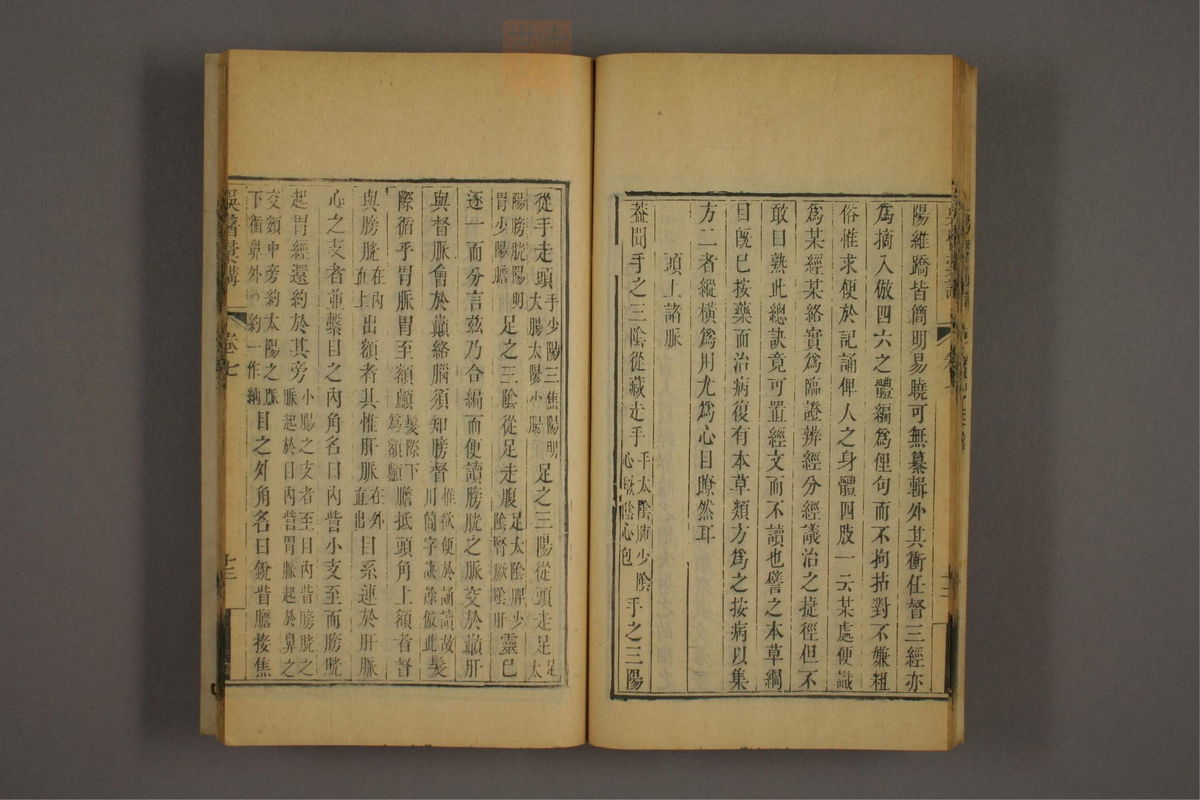 陽維蹻皆簡明易曉可無纂輯外其衝任督三經亦
為摘入倣四六之體編為俚句而不拘拈對不嫌粗
俗惟求便於記誦俾人之身體四肢一云某處便識
為某經某絡實為臨證辨經分經議治之捷徑但不
敢曰熟此總訣竟可置經文而不讀也譬之本草綱
目既已按藥而治病復有本草類方為之按病以集
方二者縱橫為用尤為心目瞭然耳
頭上諸脈
蓋聞手之三陰從藏走手手太陰肺少陰心厥陰心包手之三陽
從手走頭手少陽三焦陽明大腸太陽小腸足之三陽從頭走足足太陽膀胱陽明胃少陽膽
足之三陰從足走腹足太陰脾少陰腎厥陰肝靈已
逐一而分言茲乃合編而便讀膀胱之脈交於巔肝
與督脈會於巔絡腦須知膀督惟欲便於誦讀故用簡字訣餘倣此髮
際循乎胃脈胃至額顱髮際下為額顱膽抵頭角上額者督
與膀胱在內直上出額者其惟肝脈在外直出目系連於肝脈
心之支者並繫目之內角名曰內眥小支至而膀胱
起胃經還約於其旁小腸之支者至目內眥膀胱之脈起於目內眥胃脈起於鼻之
交頞中旁約太陽之脈下循鼻外約一作納目之外角名曰銳眥膽接焦
吳醫彙講
卷七
十三